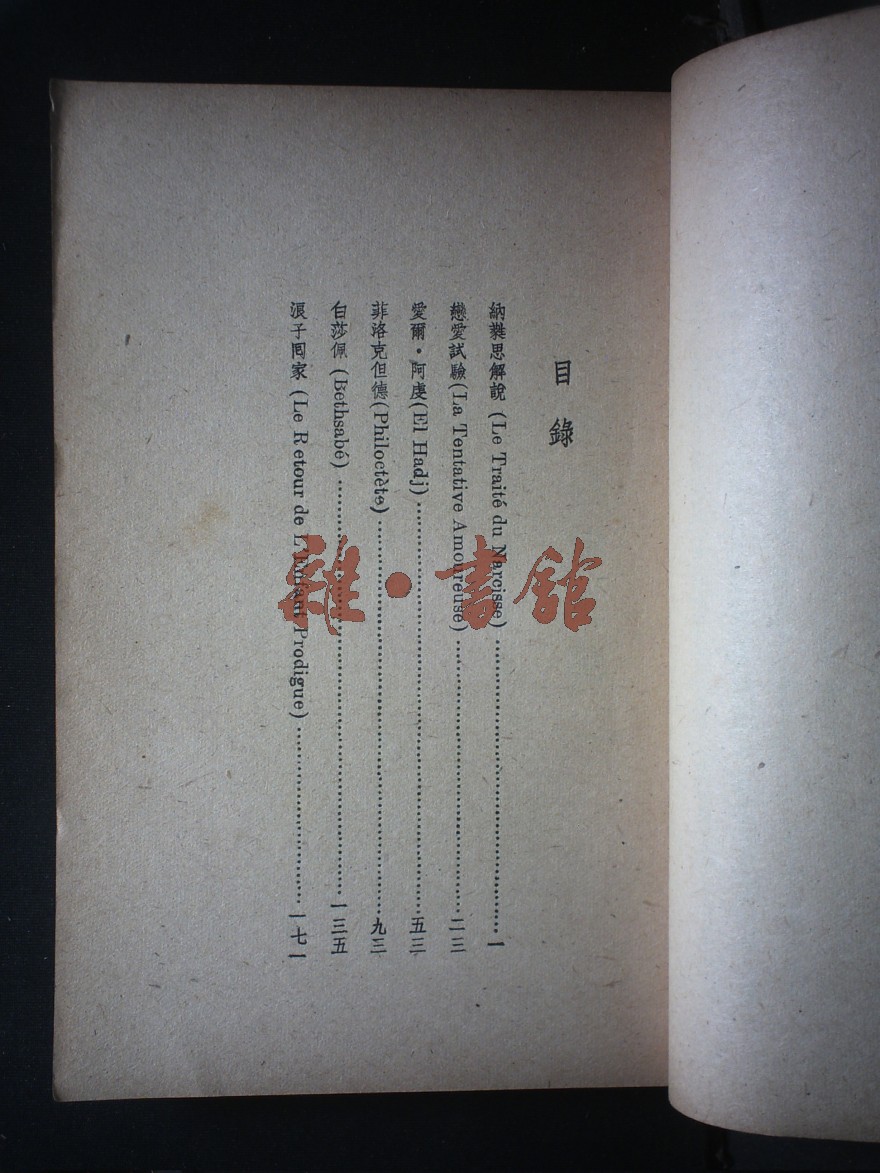 目錄
納蕤思解說 (Le Traité du Narcisse)……一
戀愛試驗 (La Tentative Amoureuse)……二三
愛爾·阿虔 (El Hadj)……五三
菲洛克但德 (Philoctète)……九三
白莎佩 (Bethsabé)……一三五
浪子回家 (Le Retour de L'Enfant Prodigue)……一七一
雜·書館